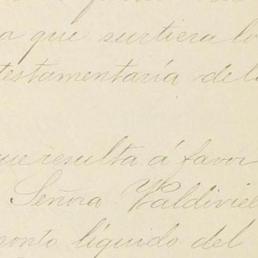 que surtiera lo
testamentaría del
que resulta á favor
Señora Valdivie
monto líquido del